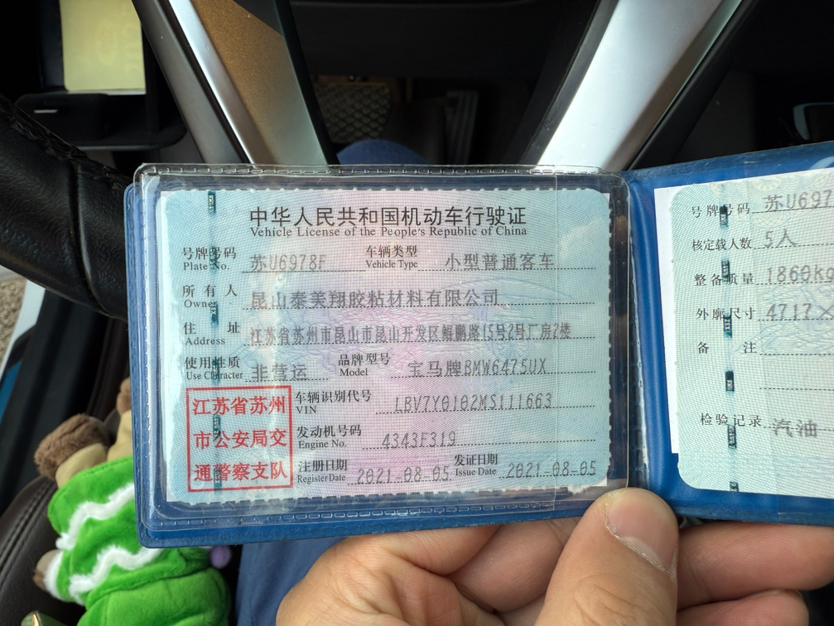 中华人民共和国机动车行驶证
Vehicle License of the People's Republic of China
号牌号码 Plate No. 苏U6978F 车辆类型 Vehicle Type 小型普通客车
所有人 Owner 昆山泰美翔胶粘材料有限公司
住址 Address 江苏省苏州市昆山市昆山开发区鲲鹏路15号2号厂房2楼
使用性质 Use Character 非营运 品牌型号 Model 宝马牌BMW6475UX
江苏省苏州
市公安局交
通警察支队
车辆识别代号 VIN LBV7Y0102MS111663
发动机号码 Engine No. 4343F319
注册日期 Register Date 2021-08-05 发证日期 Issue Date 2021-08-05
号牌号码 苏U697
核定载人数 5人
整备质量 1860kg
外廓尺寸 4717×
备注
检验记录 汽油